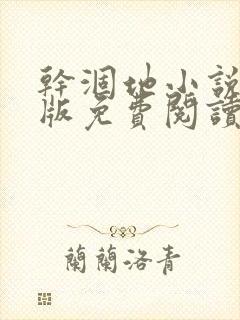 幹涸地小說
版免費閱讀
蘭蘭洛青